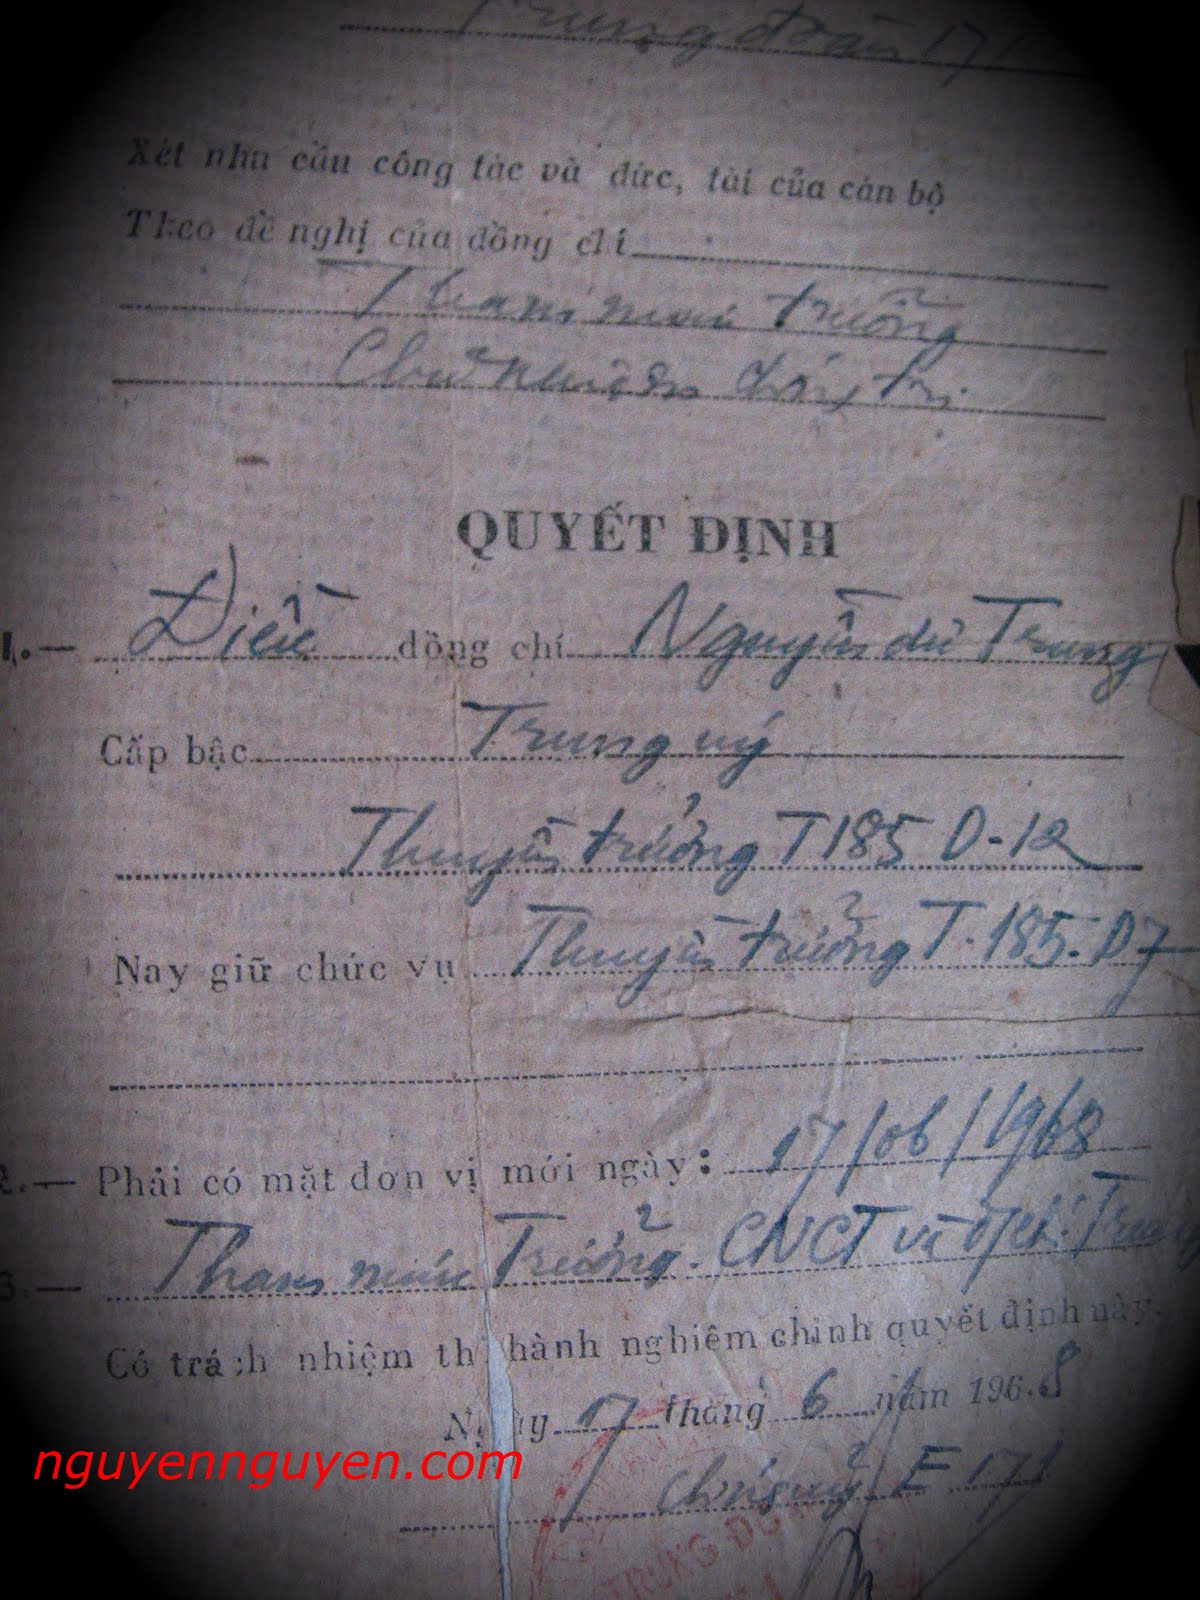 Trung đoàn 171
Xét nhu cầu công tác và đức, tài của cán bộ
Theo đề nghị của đồng chí
Tham mưu trưởng
Chủ nhiệm chính trị
QUYẾT ĐỊNH
1.— Điều đồng chí Nguyễn dư Trung
Cấp bậc Trung uý
Thuyền trưởng T185 D-12
Nay giữ chức vụ Thuyền trưởng T.185.D7
2.— Phải có mặt đơn vị mới ngày: 17/06/1968
3.— Tham mưu Trưởng. CNCT và đ/c: Trung
Có trách nhiệm thi hành nghiêm chỉnh quyết định này.
Ngày 17 tháng 6 năm 1968
Chính uỷ E 171
TRUNG ĐOÀN
nguyennguyen.com